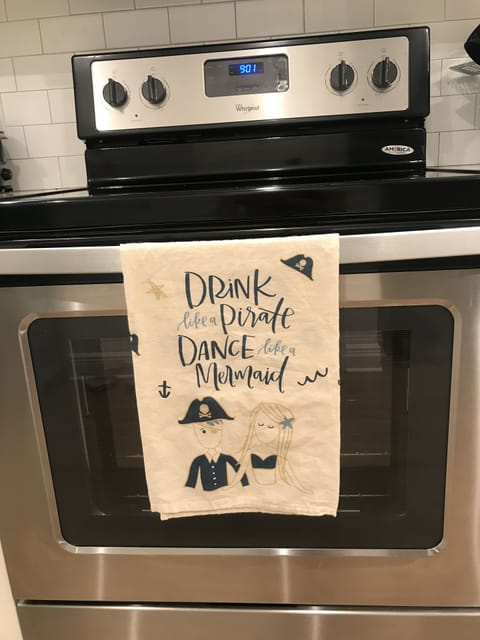 9:01
Whirlpool
AMERICA
DRINK
like a Pirate
DANCE like a
Mermaid